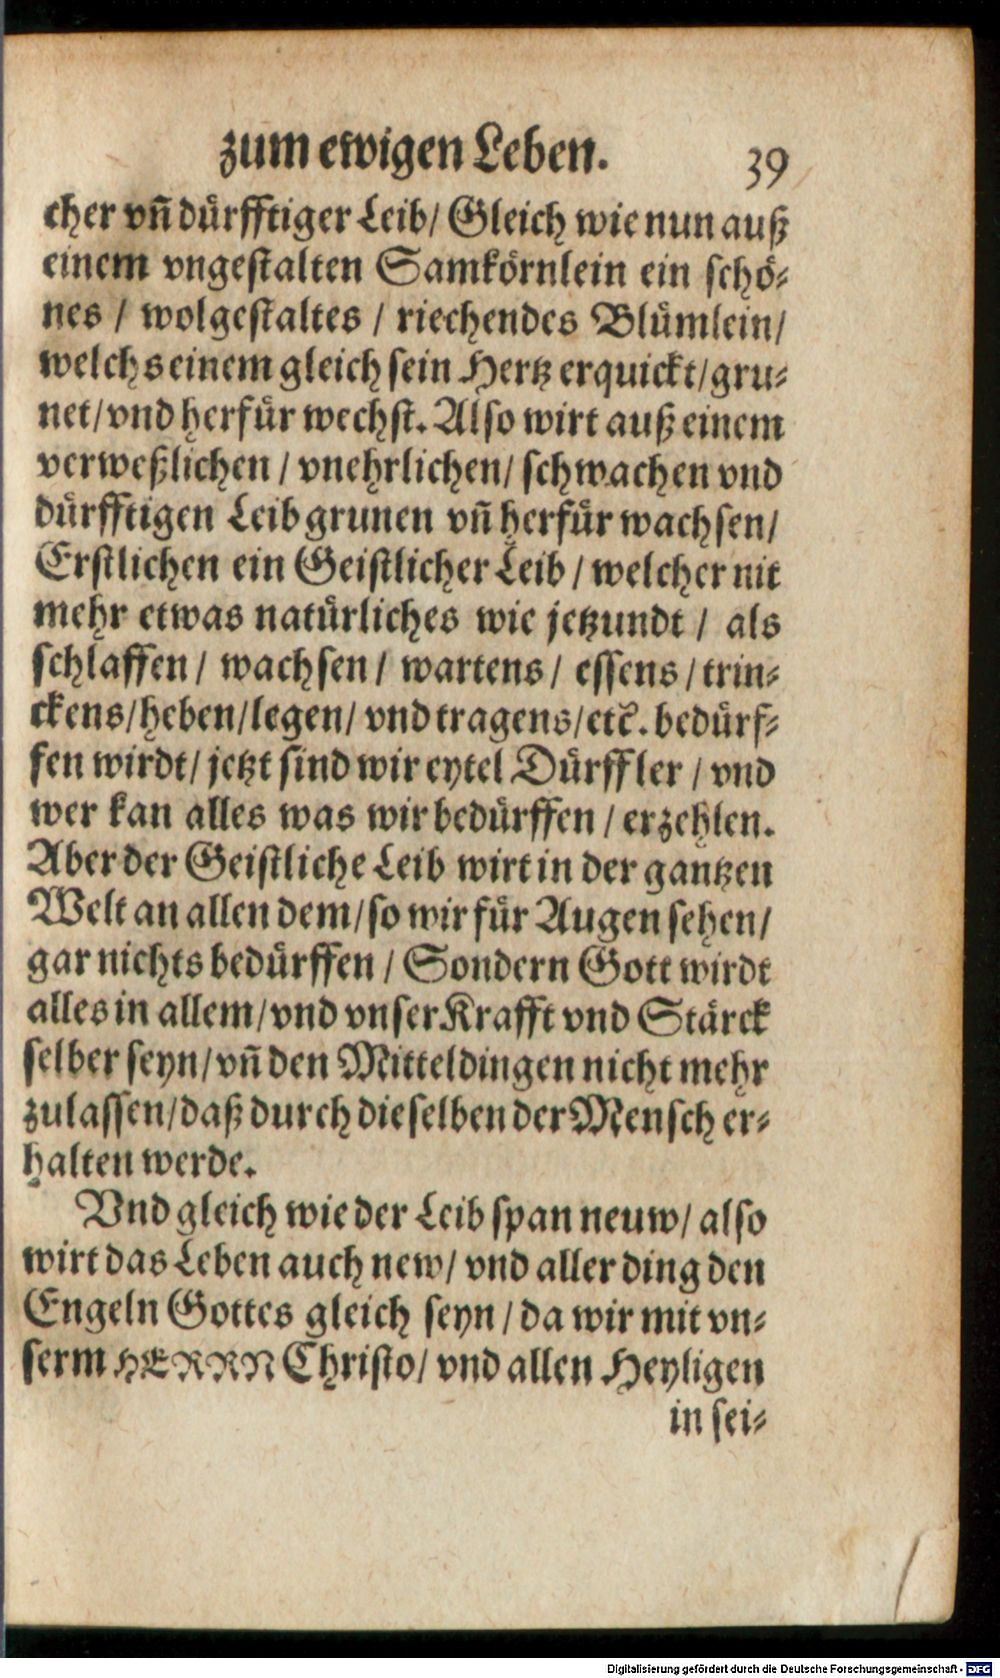 zum ewigen Leben. 39
cher vñ dürfftiger Leib/ Gleich wie nun auß
einem vngestalten Samkörnlein ein schö-
nes / wolgestaltes / riechendes Blümlein/
welchs einem gleich sein Hertz erquickt/gru-
net/vnd herfür wechst. Also wirt auß einem
verweßlichen / vnehrlichen/ schwachen vnd
dürfftigen Leib grunen vñ herfür wachsen/
Erstlichen ein Geistlicher Leib / welcher nit
mehr etwas natürliches wie jetzundt / als
schlaffen/ wachsen/ wartens/ essens/trin-
ckens/heben/legen/ vnd tragens/etc̃. bedürf-
fen wirdt/ jetzt sind wir eytel Dürffler / vnd
wer kan alles was wir bedürffen / erzehlen.
Aber der Geistliche Leib wirt in der gantzen
Welt an allen dem/so wir für Augen sehen/
gar nichts bedürffen / Sondern Gott wirdt
alles in allem/vnd vnser Krafft vnd Stärck
selber seyn/vñ den Mitteldingen nicht mehr
zulassen/daß durch dieselben der Mensch er-
halten werde.
Vnd gleich wie der Leib span neuw/ also
wirt das Leben auch new/ vnd aller ding den
Engeln Gottes gleich seyn / da wir mit vn-
serm HERRN Christo/ vnd allen Heyligen
in sei-
Digitalisierung gefördert durch die Deutsche Forschungsgemeinschaft - DFG